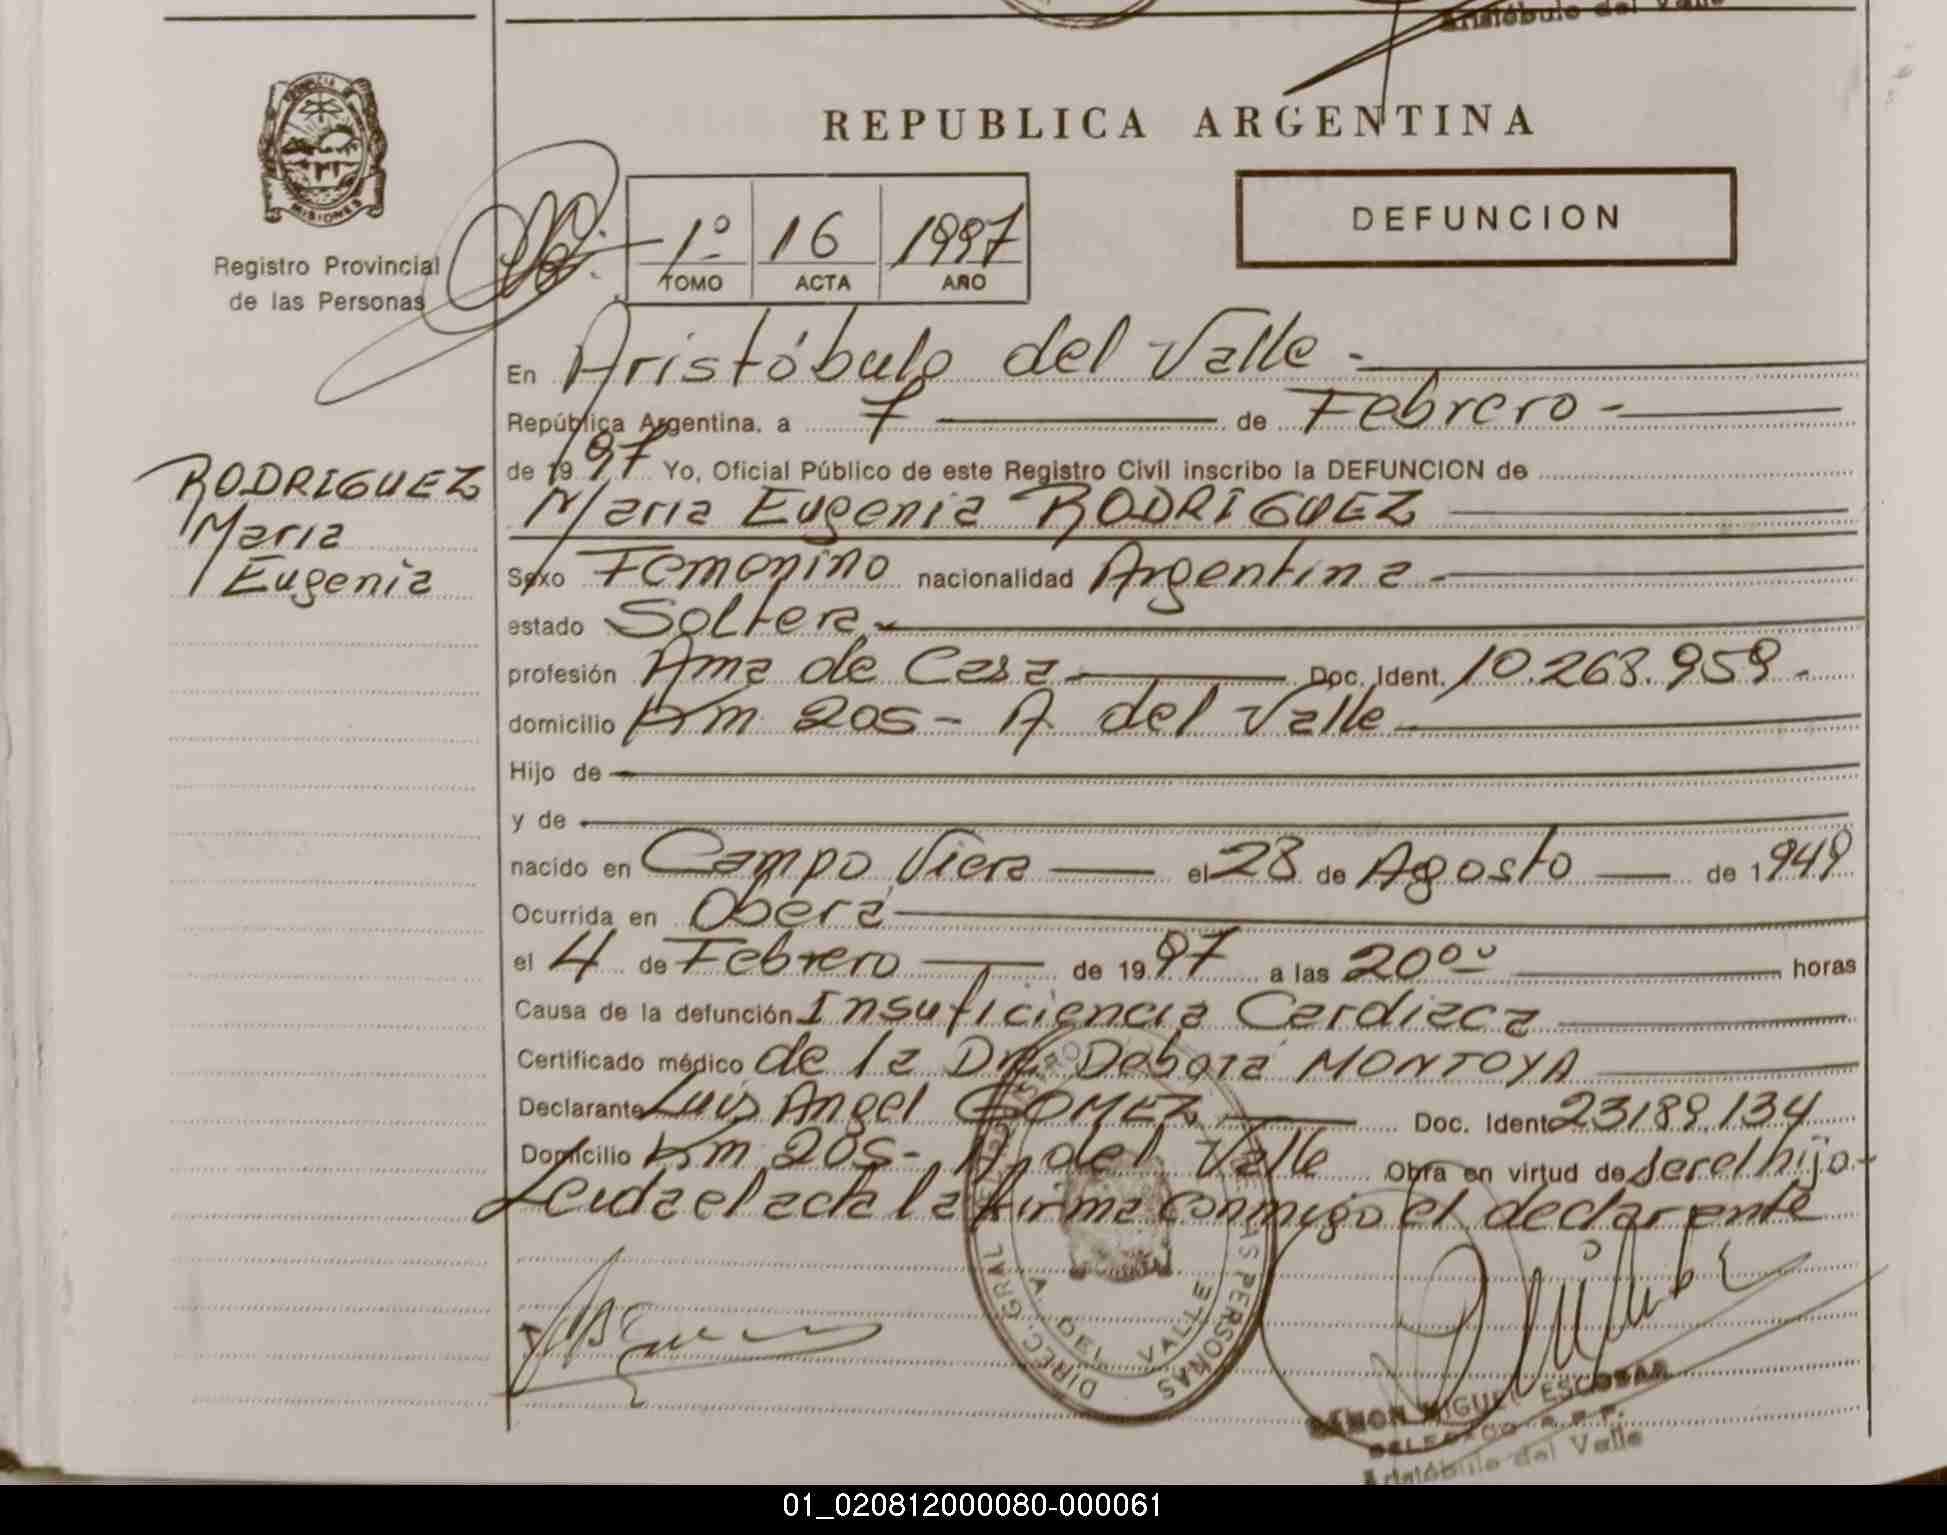 Aristóbulo del Valle
REPUBLICA ARGENTINA
PROVINCIA
MISIONES
Registro Provincial
de las Personas
1º 16 1997
TOMO ACTA AÑO
DEFUNCION
En Aristóbulo del Valle -
República Argentina, a 7 de Febrero -
de 1997 Yo, Oficial Público de este Registro Civil inscribo la DEFUNCION de
RODRIGUEZ
Maria
Eugenia
Maria Eugenia RODRIGUEZ
Sexo Femenino nacionalidad Argentina -
estado Soltera -
profesión Ama de Casa Doc. Ident. 10.268.959 -
domicilio Km 205 - A del Valle
Hijo de
y de
nacido en Campo Viera el 28 de Agosto de 1949
Ocurrida en Oberá
el 4 de Febrero de 1997 a las 20°° horas
Causa de la defunción Insuficiencia Cardiaca
Certificado médico de la Dra. Debora MONTOYA
Declarante Luis Angel GOMEZ Doc. Ident 23189.134
Domicilio Km 205 - A del Valle Obra en virtud de ser el hijo -
Leida el acta la firma conmigo el declarante
DIREC. GRAL PERSONAS
A. DEL VALLE
RAMON MIGUEL ESCOBAR
DELEGADO R.P.P.
Aristóbulo del Valle
01_020812000080-000061